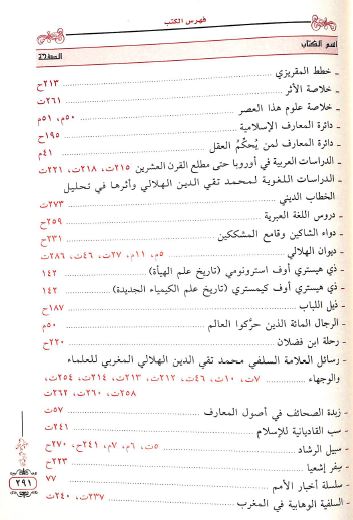 فهرس الكتب
اسم الكتاب الصفحة
ـ خطط المقريزي ٢١٣ح
ـ خلاصة الأثر ٢٦١ت
ـ خلاصة علوم هذا العصر ٥٠م، ٥١م
ـ دائرة المعارف الإسلامية ١٩٥ح
ـ دائرة المعارف لمن يُحكّمُ العقل ٤١م
ـ الدراسات العربية في أوروبا حتى مطلع القرن العشرين ٢١٥ت، ٢١٨ت، ٢٢١ت
ـ الدراسات اللغوية لمحمد تقي الدين الهلالي وأثرها في تحليل
الخطاب الديني ٢٧٣ت
ـ دروس اللغة العبرية ٢٥٩ح
ـ دواء الشاكين وقامع المشككين ٢٣١ح
ـ ديوان الهلالي ٥م، ١١م، ٢٧ت، ٤٦ت، ٢٨٦ت
ـ ذي هيستري أوف استرونومي (تاريخ علم الهيأة) ١٤٢
ـ ذي هيستري أوف كيمستري (تاريخ علم الكيمياء الجديدة) ١٤٢
ـ ذيل اللباب ١٨٧ح
ـ الرجال المائة الذين حرّكوا العالم ٥٠م
ـ رحلة ابن فضلان ٢٢٠ح
ـ رسائل العلامة السلفي محمد تقي الدين الهلالي المغربي للعلماء
والوجهاء ٧ت، ١٠ت، ٤٦ت، ٢١٢ت، ٢١٣ت، ٢١٤ت، ٢٥٤ت،
٢٥٨ت، ٢٦٠ت، ٢٦٢ت
ـ زبدة الصحائف في أصول المعارف ٥٧ت
ـ سب القاديانية للإسلام ٢٤١ت
ـ سبيل الرشاد ٥ت، ٦م، ٧م، ٢٤١ح، ٢٧٠ح
ـ سفر إشعيا ٢٢٣ح
ـ سلسلة أخبار الأمم ٧٧
ـ السلفية الوهابية في المغرب ٢٣٧ت، ٢٤٠ت
٢٩١